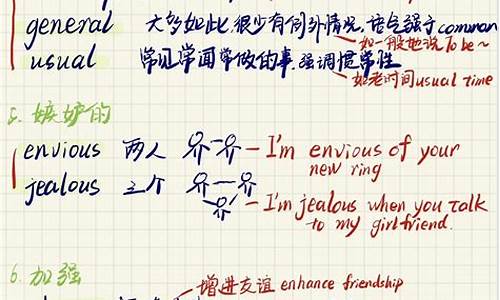 general 大多如此,很少有例外情况,语气强于common
如一般地说 To be ~
usual 常见常闻常做的事,强调惯常性
如老时间usual time
5. 嫉妒的
envious 两人 — I'm envious of your
new ring
jealous 三个
— I'm jealous when you talk
to my girlfriend.
6. 加强
增进友谊 enhance friendship